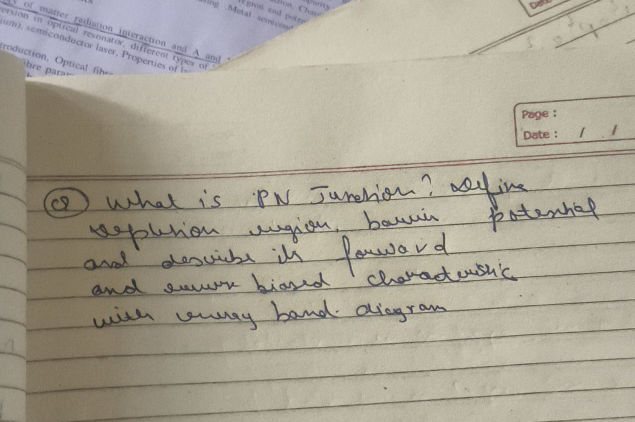 of matter radiation interaction and A and
ersion in optical resonator, different types of
ium), semiconductor laser, Properties of
troduction, Optical fibre
bre para
Metal semicon
region and
Page :
Date : / /
Q What is PN Junction? define
depletion region, barrier potential
and describe its forward
and reverse biased characteristic
with energy band diagram